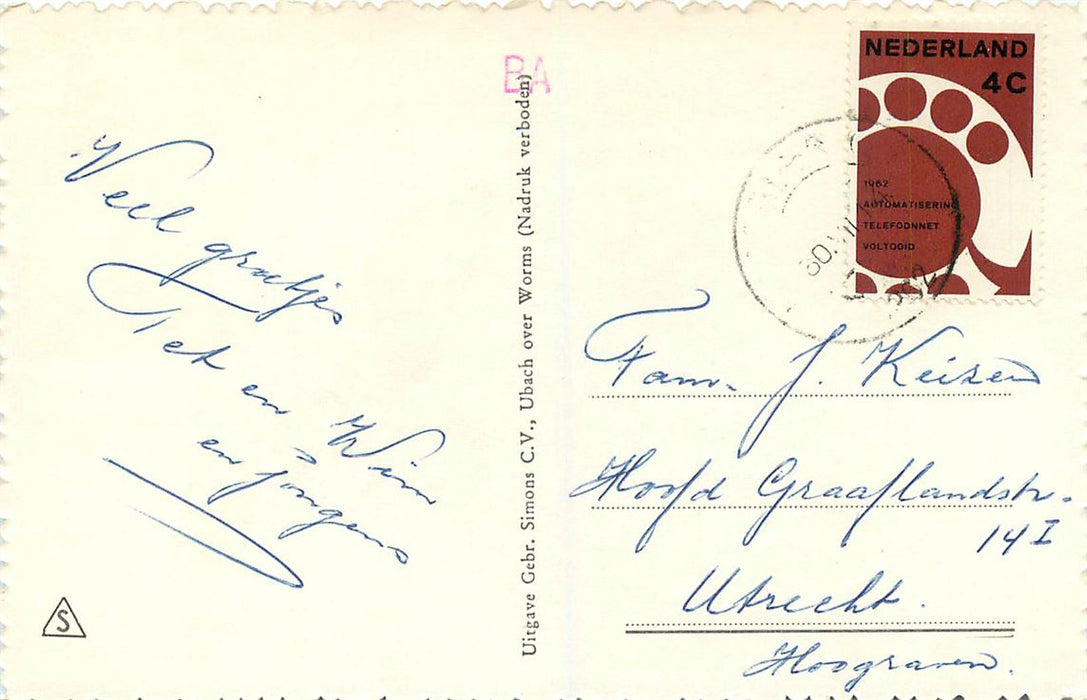 Veel groetjes
Tek en Wim
en jongens
S
BA
Uitgave Gebr. Simons C.V., Ubach over Worms (Nadruk verboden)
NEDERLAND
4C
1962
AUTOMATISERING
TELEFOONNET
VOLTOOID
30.VII
Fam. J. Keizer
Hoofd Graaflandstr.
14 I
Utrecht.
Hoograven.